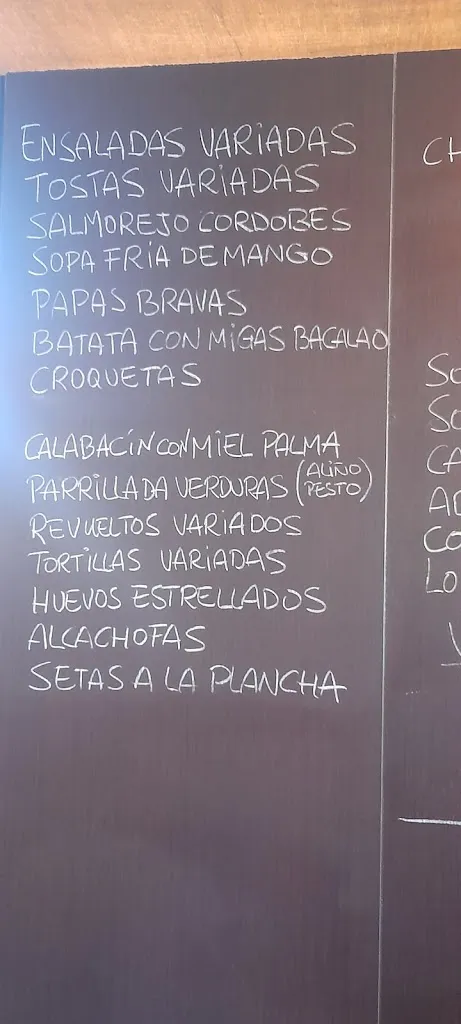 ENSALADAS VARIADAS
TOSTAS VARIADAS
SALMOREJO CORDOBES
SOPA FRIA DE MANGO
PAPAS BRAVAS
BATATA CON MIGAS BACALAO
CROQUETAS
CALABACÍN CON MIEL PALMA
PARRILLADA VERDURAS (ALIÑO PESTO)
REVUELTOS VARIADOS
TORTILLAS VARIADAS
HUEVOS ESTRELLADOS
ALCACHOFAS
SETAS A LA PLANCHA